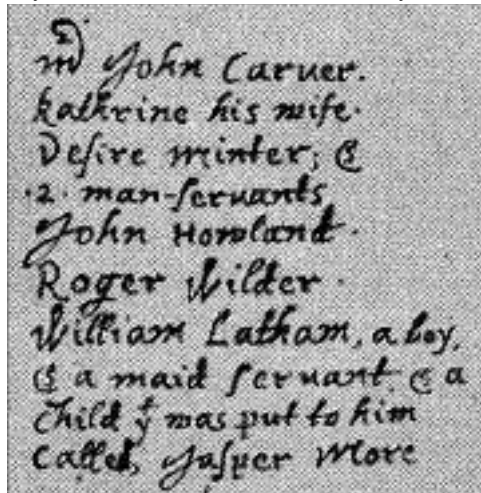 mʳ John Caruer.
kathrine his wife.
Desire minter; &
.2. man-seruants
John Howland.
Roger Wilder.
William Latham, a boy,
& a maid seruant. & a
child yᵗ was put to him
called, Jasper More